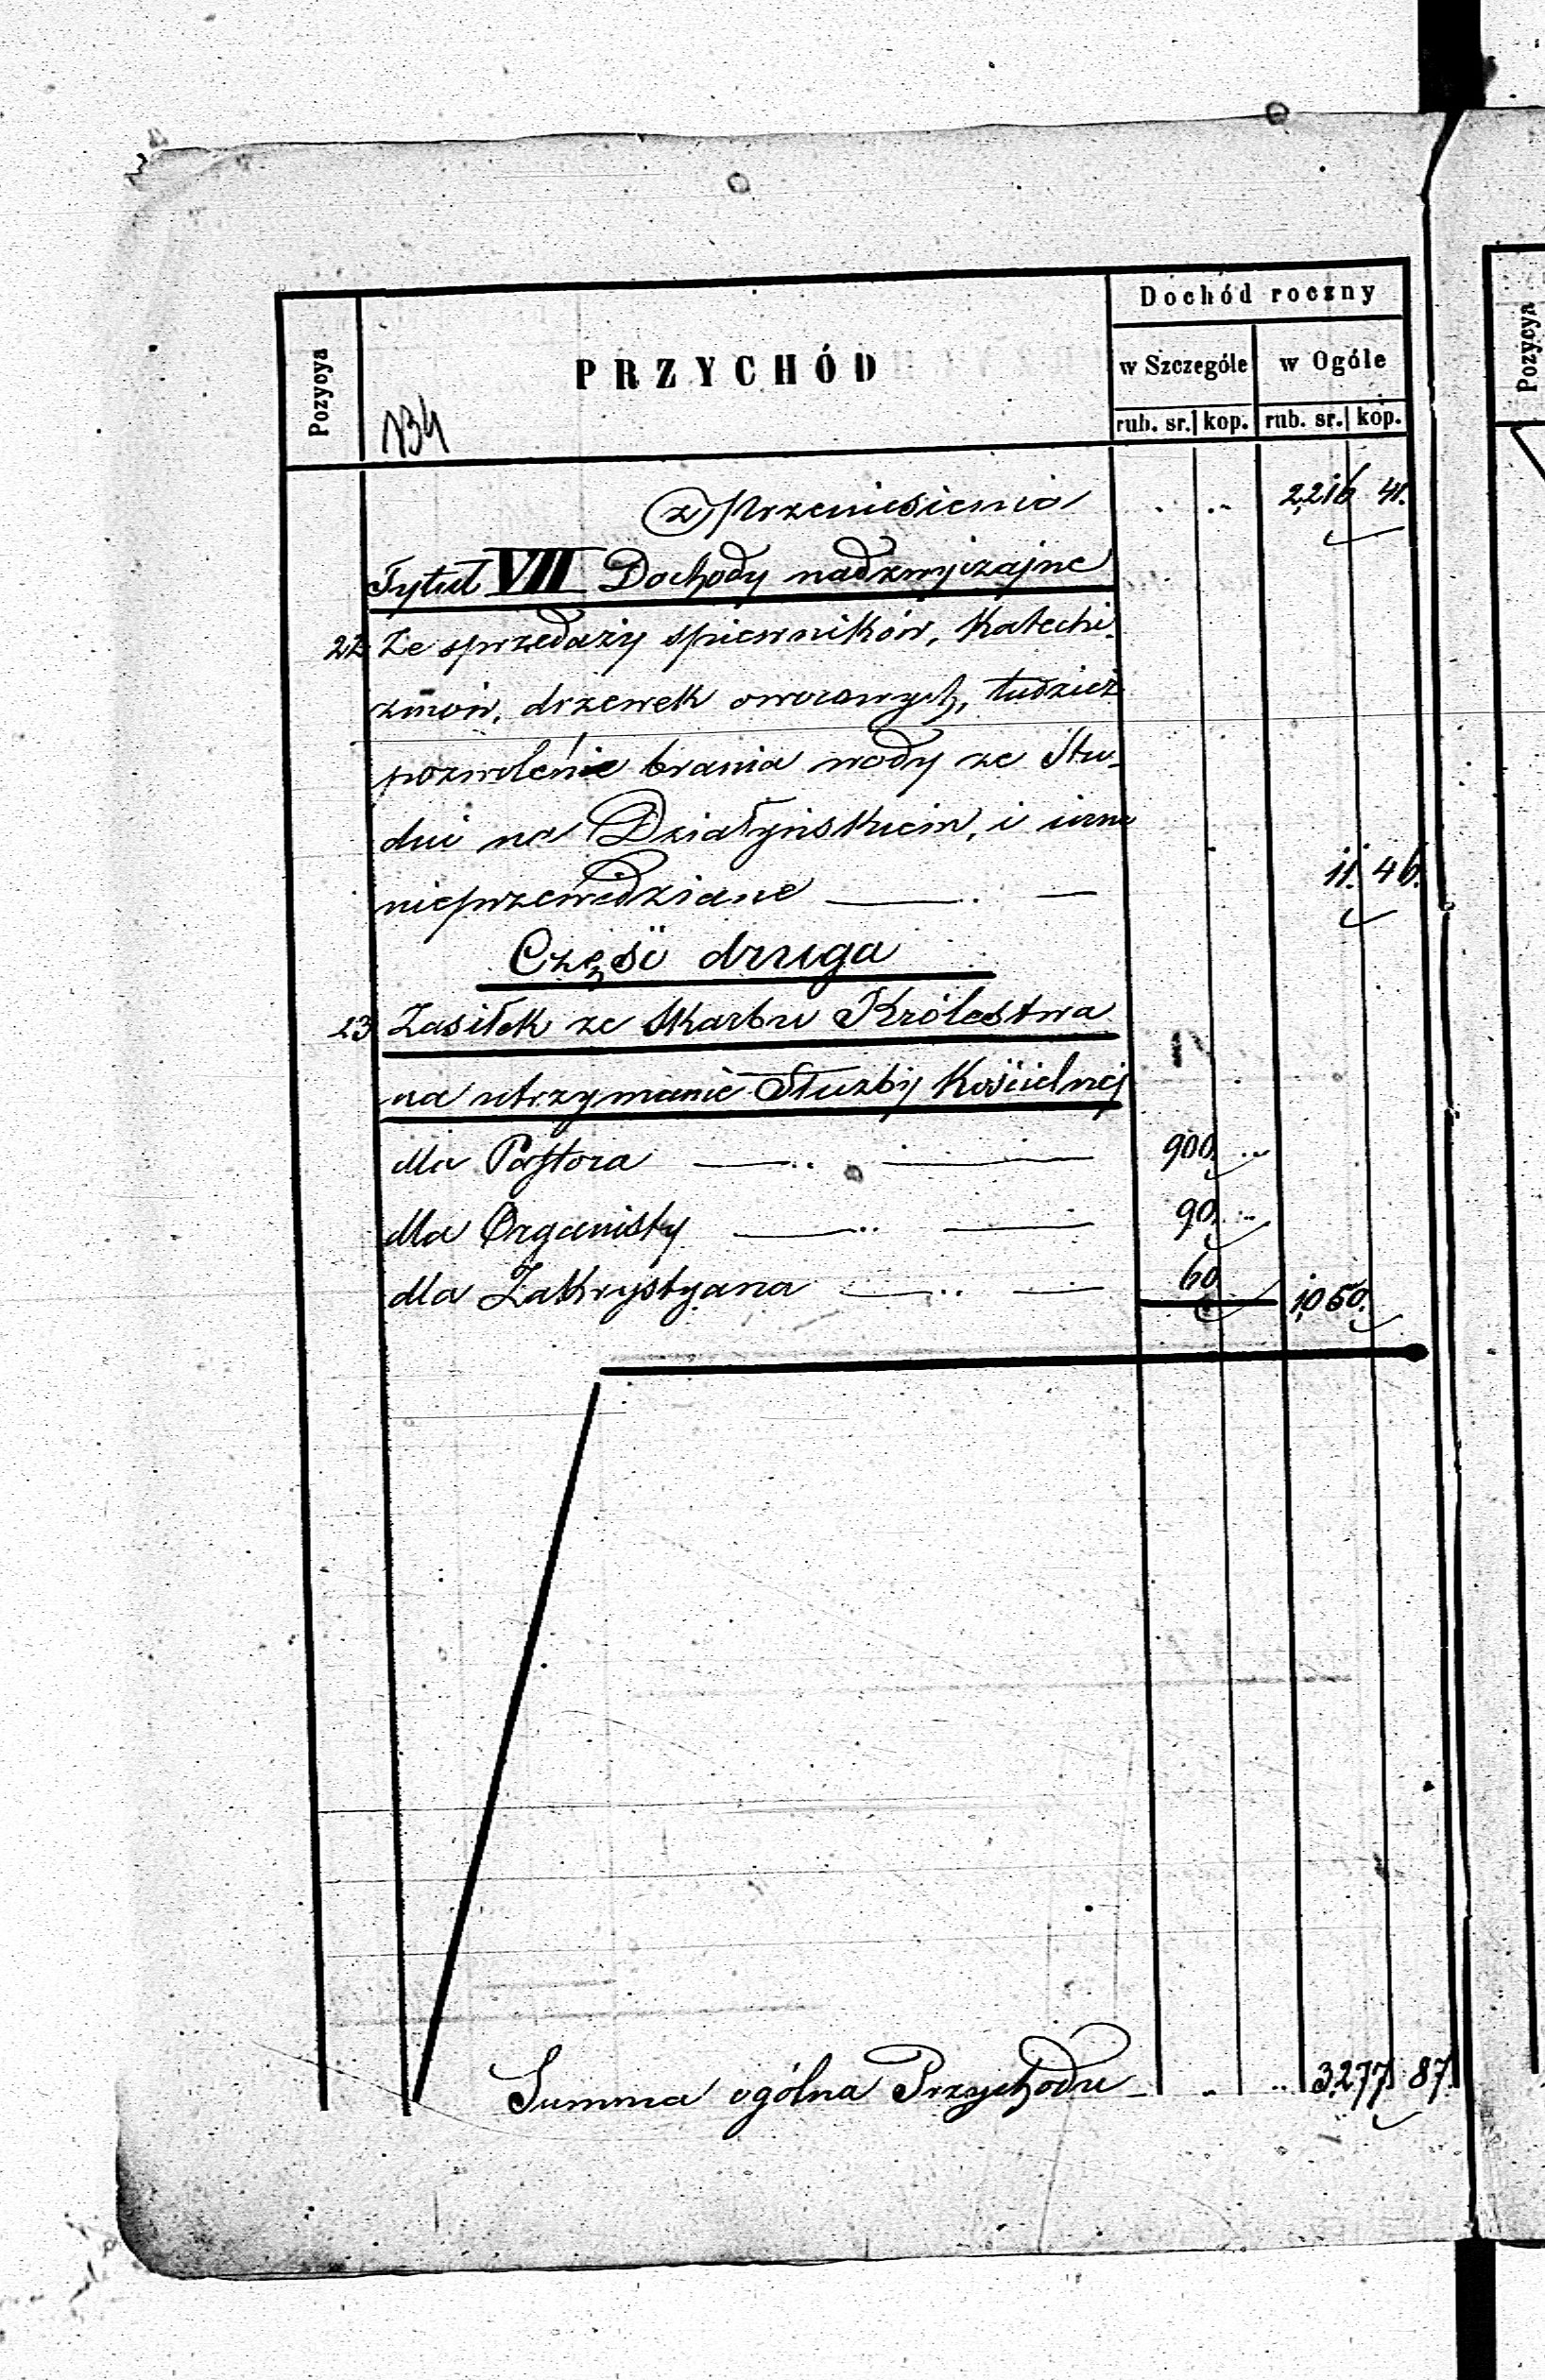 Dochód roczny
Pozycya PRZYCHÓD w Szczególe w Ogóle Pozycya
134 rub. sr. kop. rub. sr. kop.
z Przeniesienia . .. 2,216 41.
Tytuł VII Dochody nadzwyczajne
22 Ze sprzedaży spiewników, Katechi-
zmów, drzewek owocowych, tudzież
pozwolenie brania wody ze Stu-
dni na Działyńskiem, i inne
nieprzewidziane — . — 11. 46.
Część druga
23 Zasiłek ze Skarbu Królestwa
na utrzymanie Służby Kościelnej
dla Pastora — .. — 900. ..
dla Organisty — .. — 90. ..
dla Zakrystyana — .. — 60 1,050.
Summa ogólna Przychodu - .. .. 3,277 87.